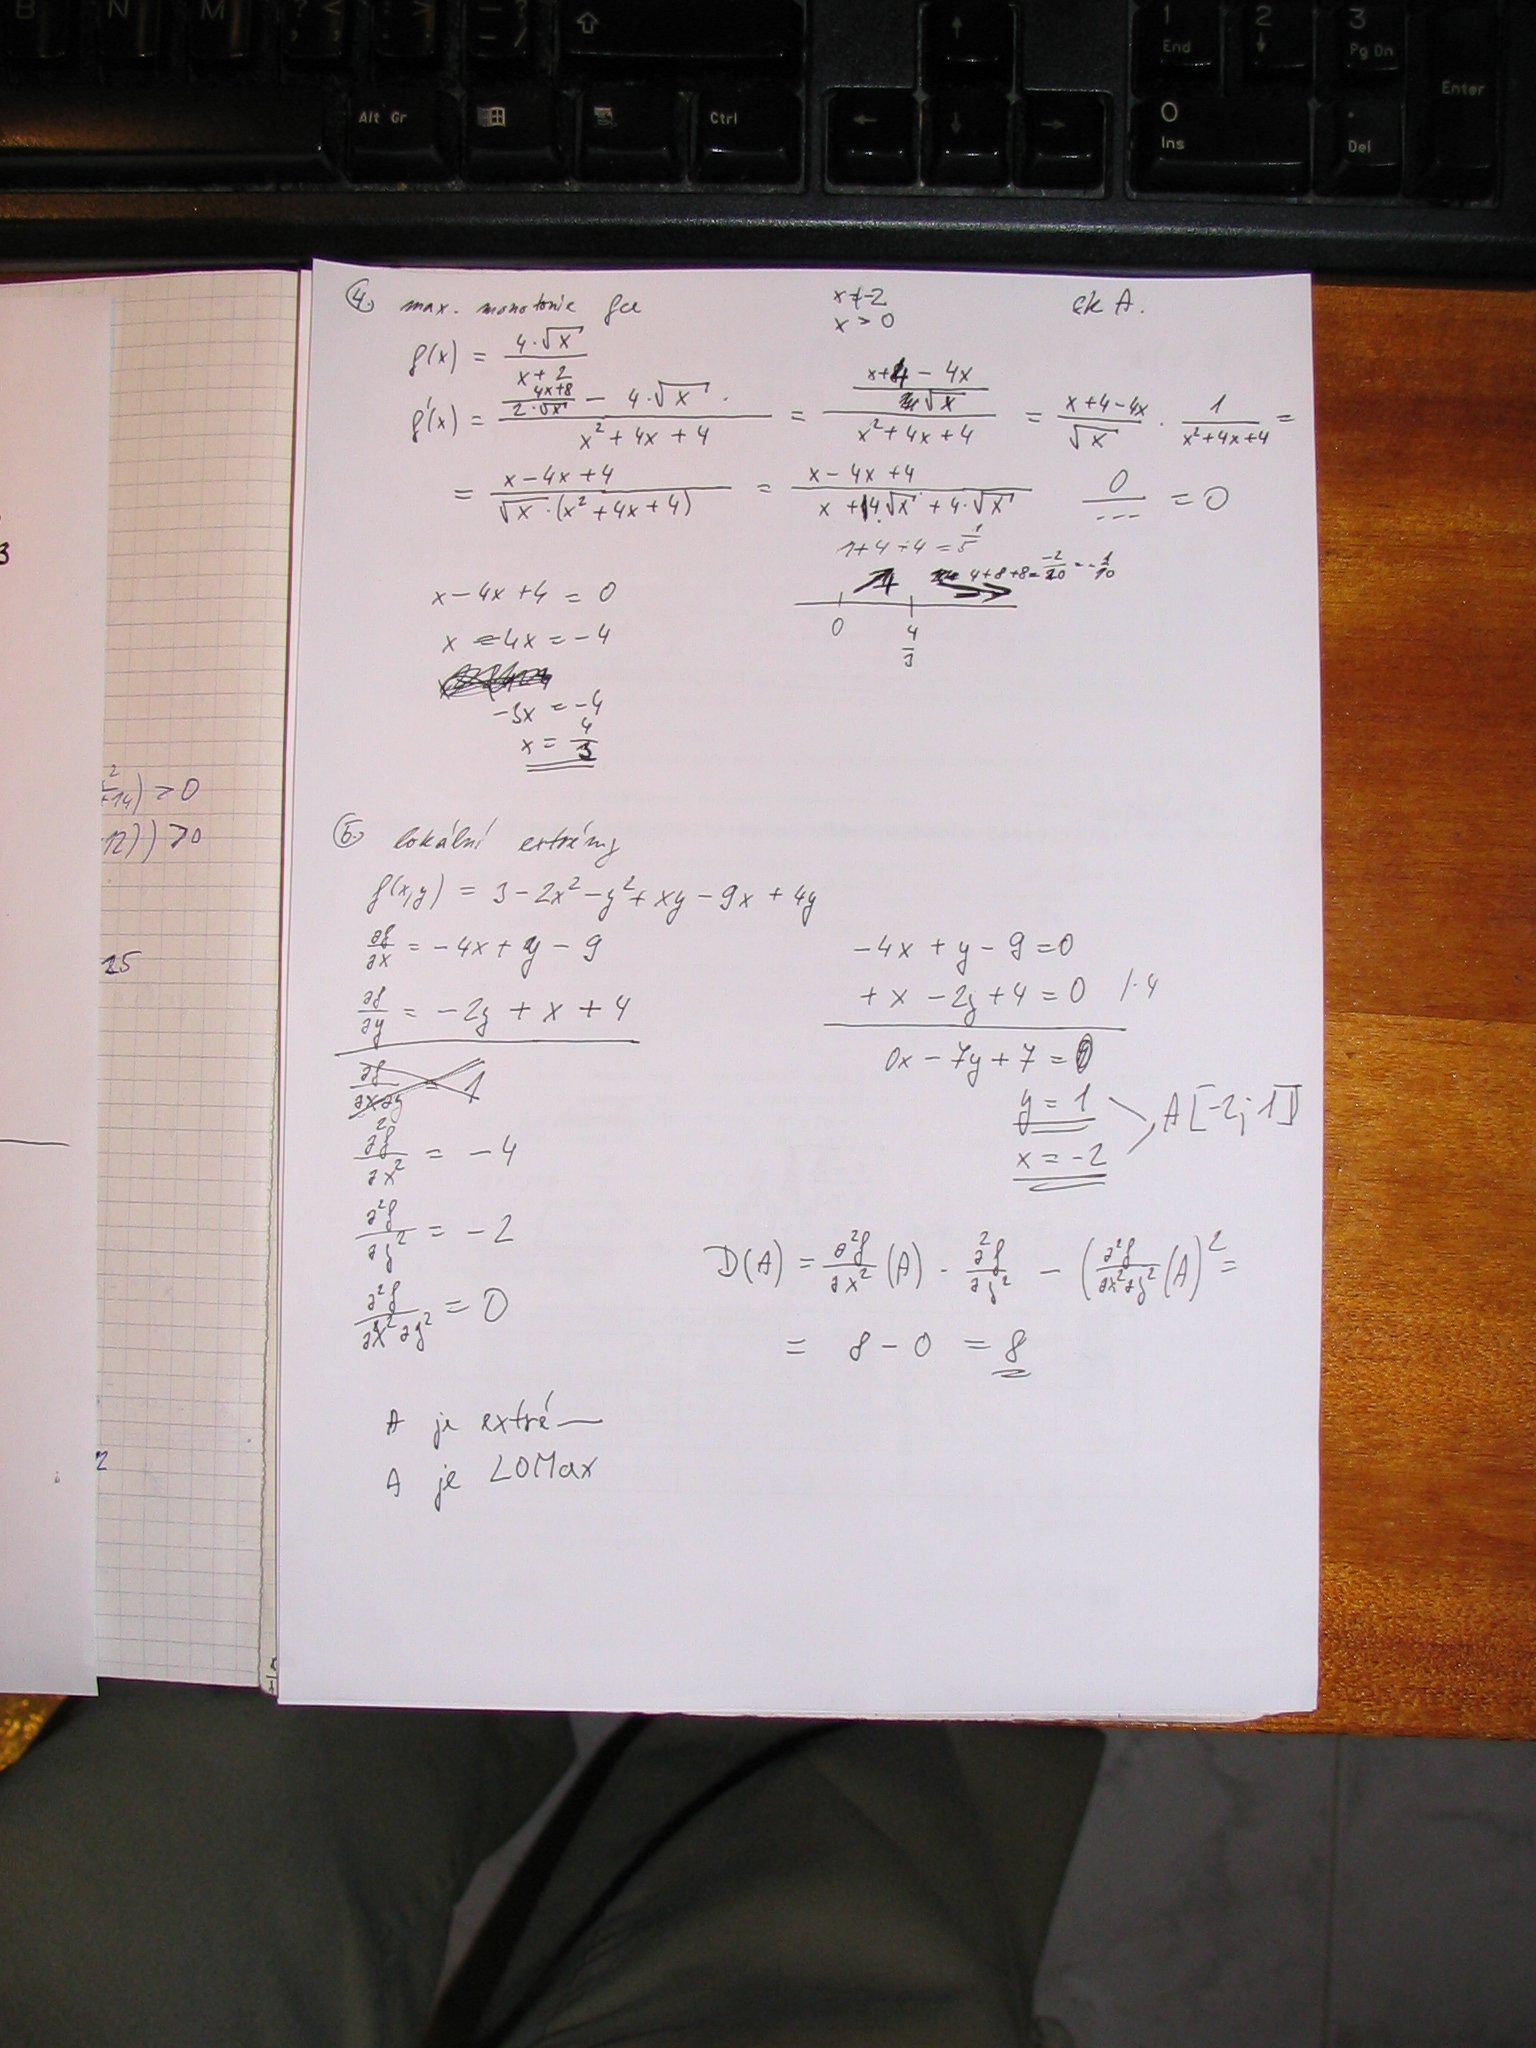 B N M ? : > — ?
< , . _ - /
1 End 2 3 Pg Dn
Enter
Alt Gr Ctrl 0 Ins . Del
4. max. monotonie fce x≠-2 čk A.
x > 0
f(x) = (4·√x)/(x+2)
f'(x) = ((4x+8)/(2·√x) - 4·√x)/(x²+4x+4) = ((x+4-4x)/√x)/(x²+4x+4) = (x+4-4x)/√x · 1/(x²+4x+4) =
= (x-4x+4)/(√x·(x²+4x+4)) = (x-4x+4)/(x+4√x+4·√x) 0/--- = 0
1+4+4 = 1/5
4+8+8 = -2/20 = -1/10
x-4x+4 = 0
0 4/3
x-4x = -4
-3x = -4
x = 4/3
5. lokální extrémy
f(x,y) = 3-2x²-y²+xy-9x+4y
∂f/∂x = -4x+y-9
∂f/∂y = -2y+x+4
∂f/∂x∂y = 1
∂²f/∂x² = -4
∂²f/∂y² = -2
∂²f/∂x²∂y² = 0
-4x+y-9=0
+x-2y+4=0 /·4
0x-7y+7=0
y=1
x=-2
A[-2;1]
D(A) = ∂²f/∂x²(A) · ∂²f/∂y² - (∂²f/∂x²∂y²(A))² =
= 8-0 = 8
A je extré—
A je LOMax
3
+14) > 0
12)) > 0
25
2